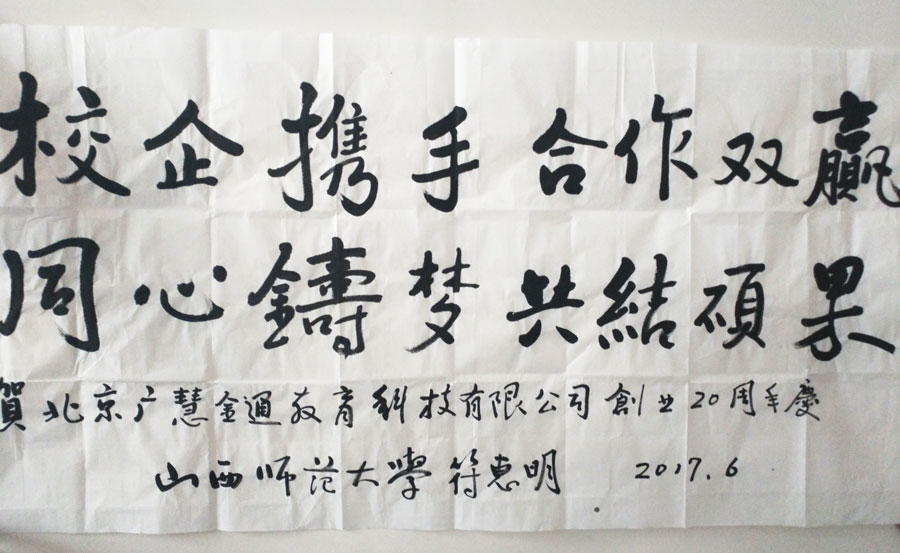 校企携手合作双赢
同心鑄梦共結碩果
賀北京广慧金通教育科技有限公司創业20周年慶
山西师范大學符惠明 2017.6